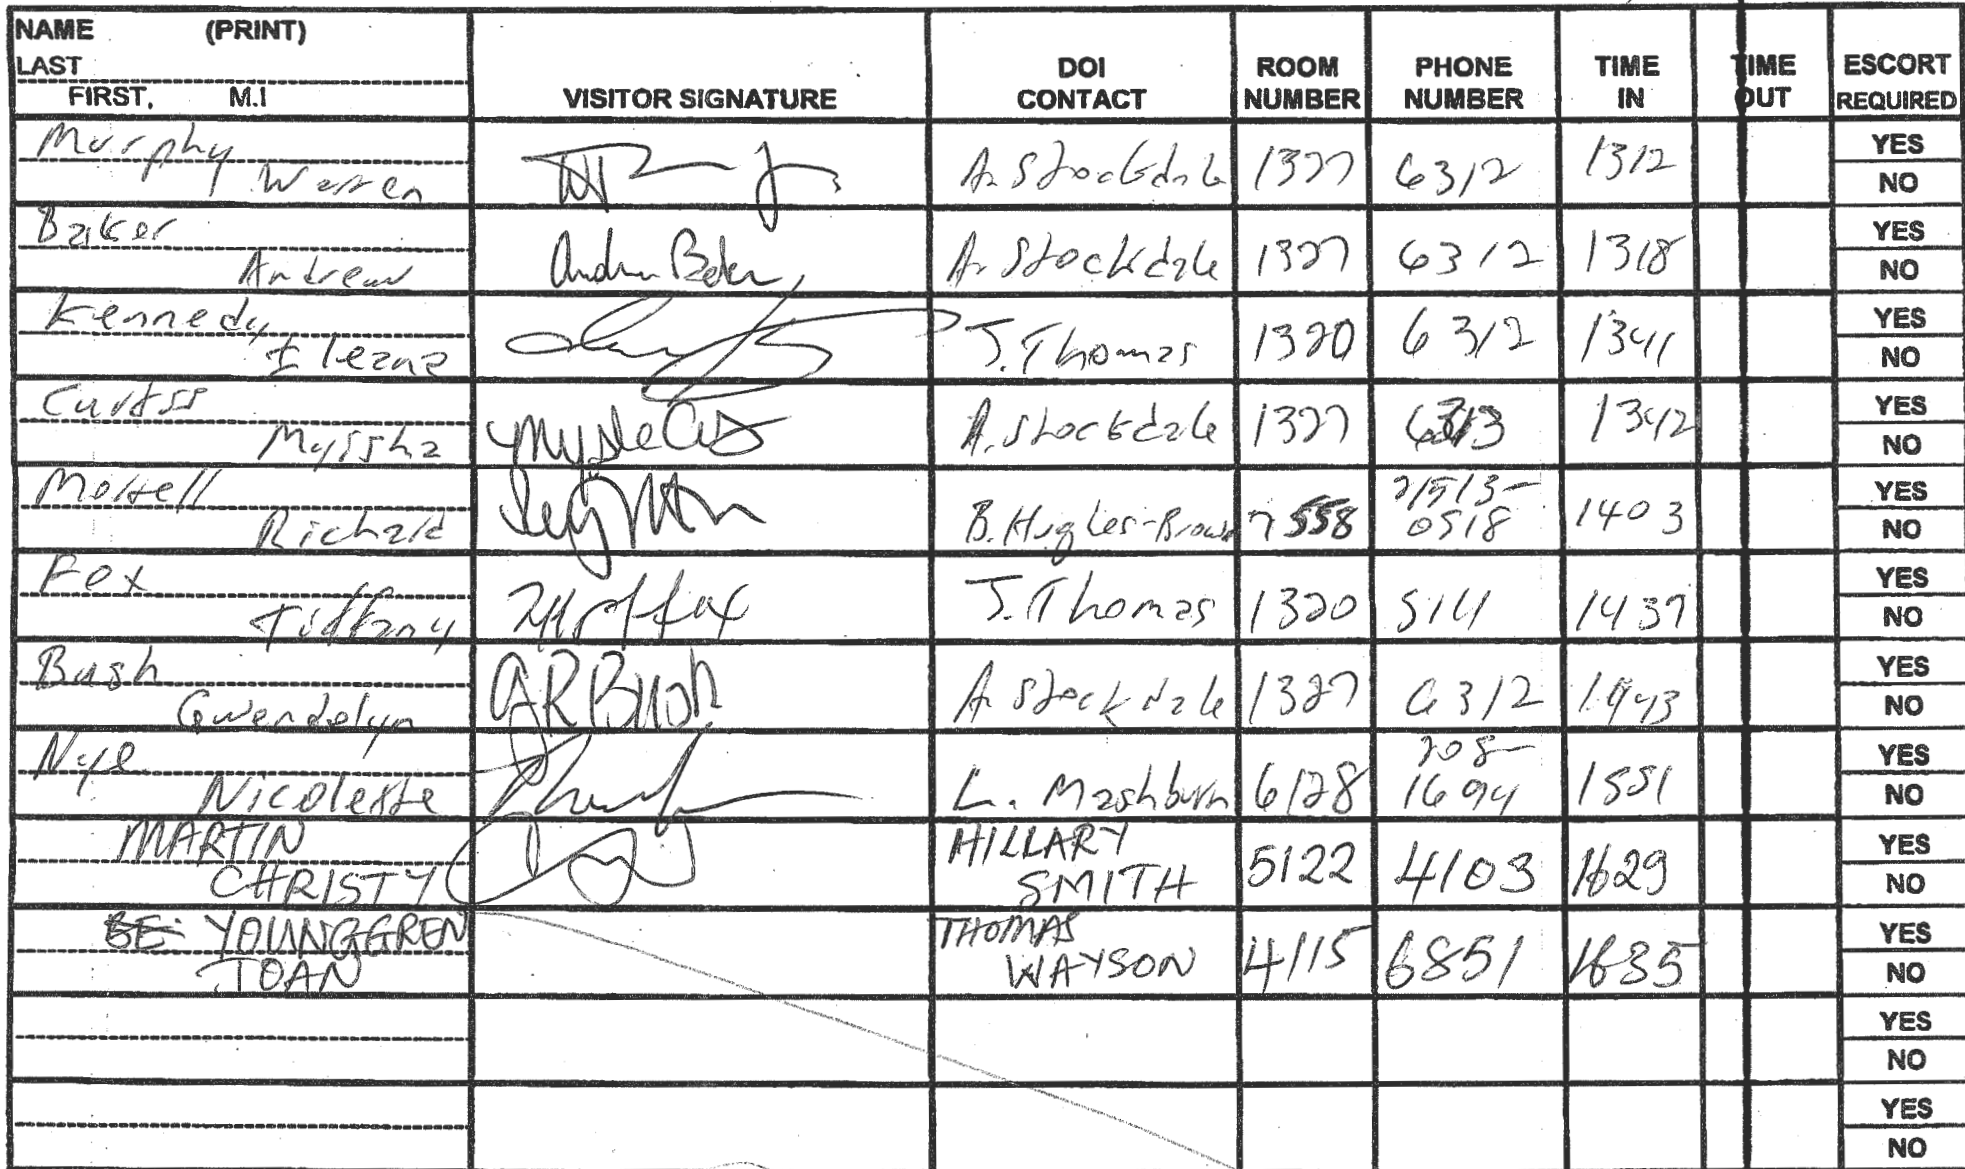 NAME (PRINT)
LAST
FIRST, M.I
VISITOR SIGNATURE
DOI CONTACT
ROOM NUMBER
PHONE NUMBER
TIME IN
TIME OUT
ESCORT REQUIRED
Murphy
Warren A. Stockdale 1327 6312 1312 YES NO
Baker
Andrew Andrew Baker A. Stockdale 1327 6312 1318 YES NO
Kennedy
Ileana J. Thomas 1320 6312 1341 YES NO
Curtss
Myssha A. Stockdale 1327 1342 YES NO
Richard B. Hughes-Brown 7558 0518 1403 YES NO
Fox
Tiffany J. Thomas 1320 1437 YES NO
Bush
Gwendolyn GRBush A. Stockdale 1327 6312 1443 YES NO
Nye 208-
Nicolette L. Mashburn 6128 1694 1551 YES NO
MARTIN HILLARY
CHRISTY SMITH 5122 4103 1629 YES NO
YOUNGGREN THOMAS
JOAN WAYSON 4115 6851 1635 YES NO
YES
NO
YES
NO